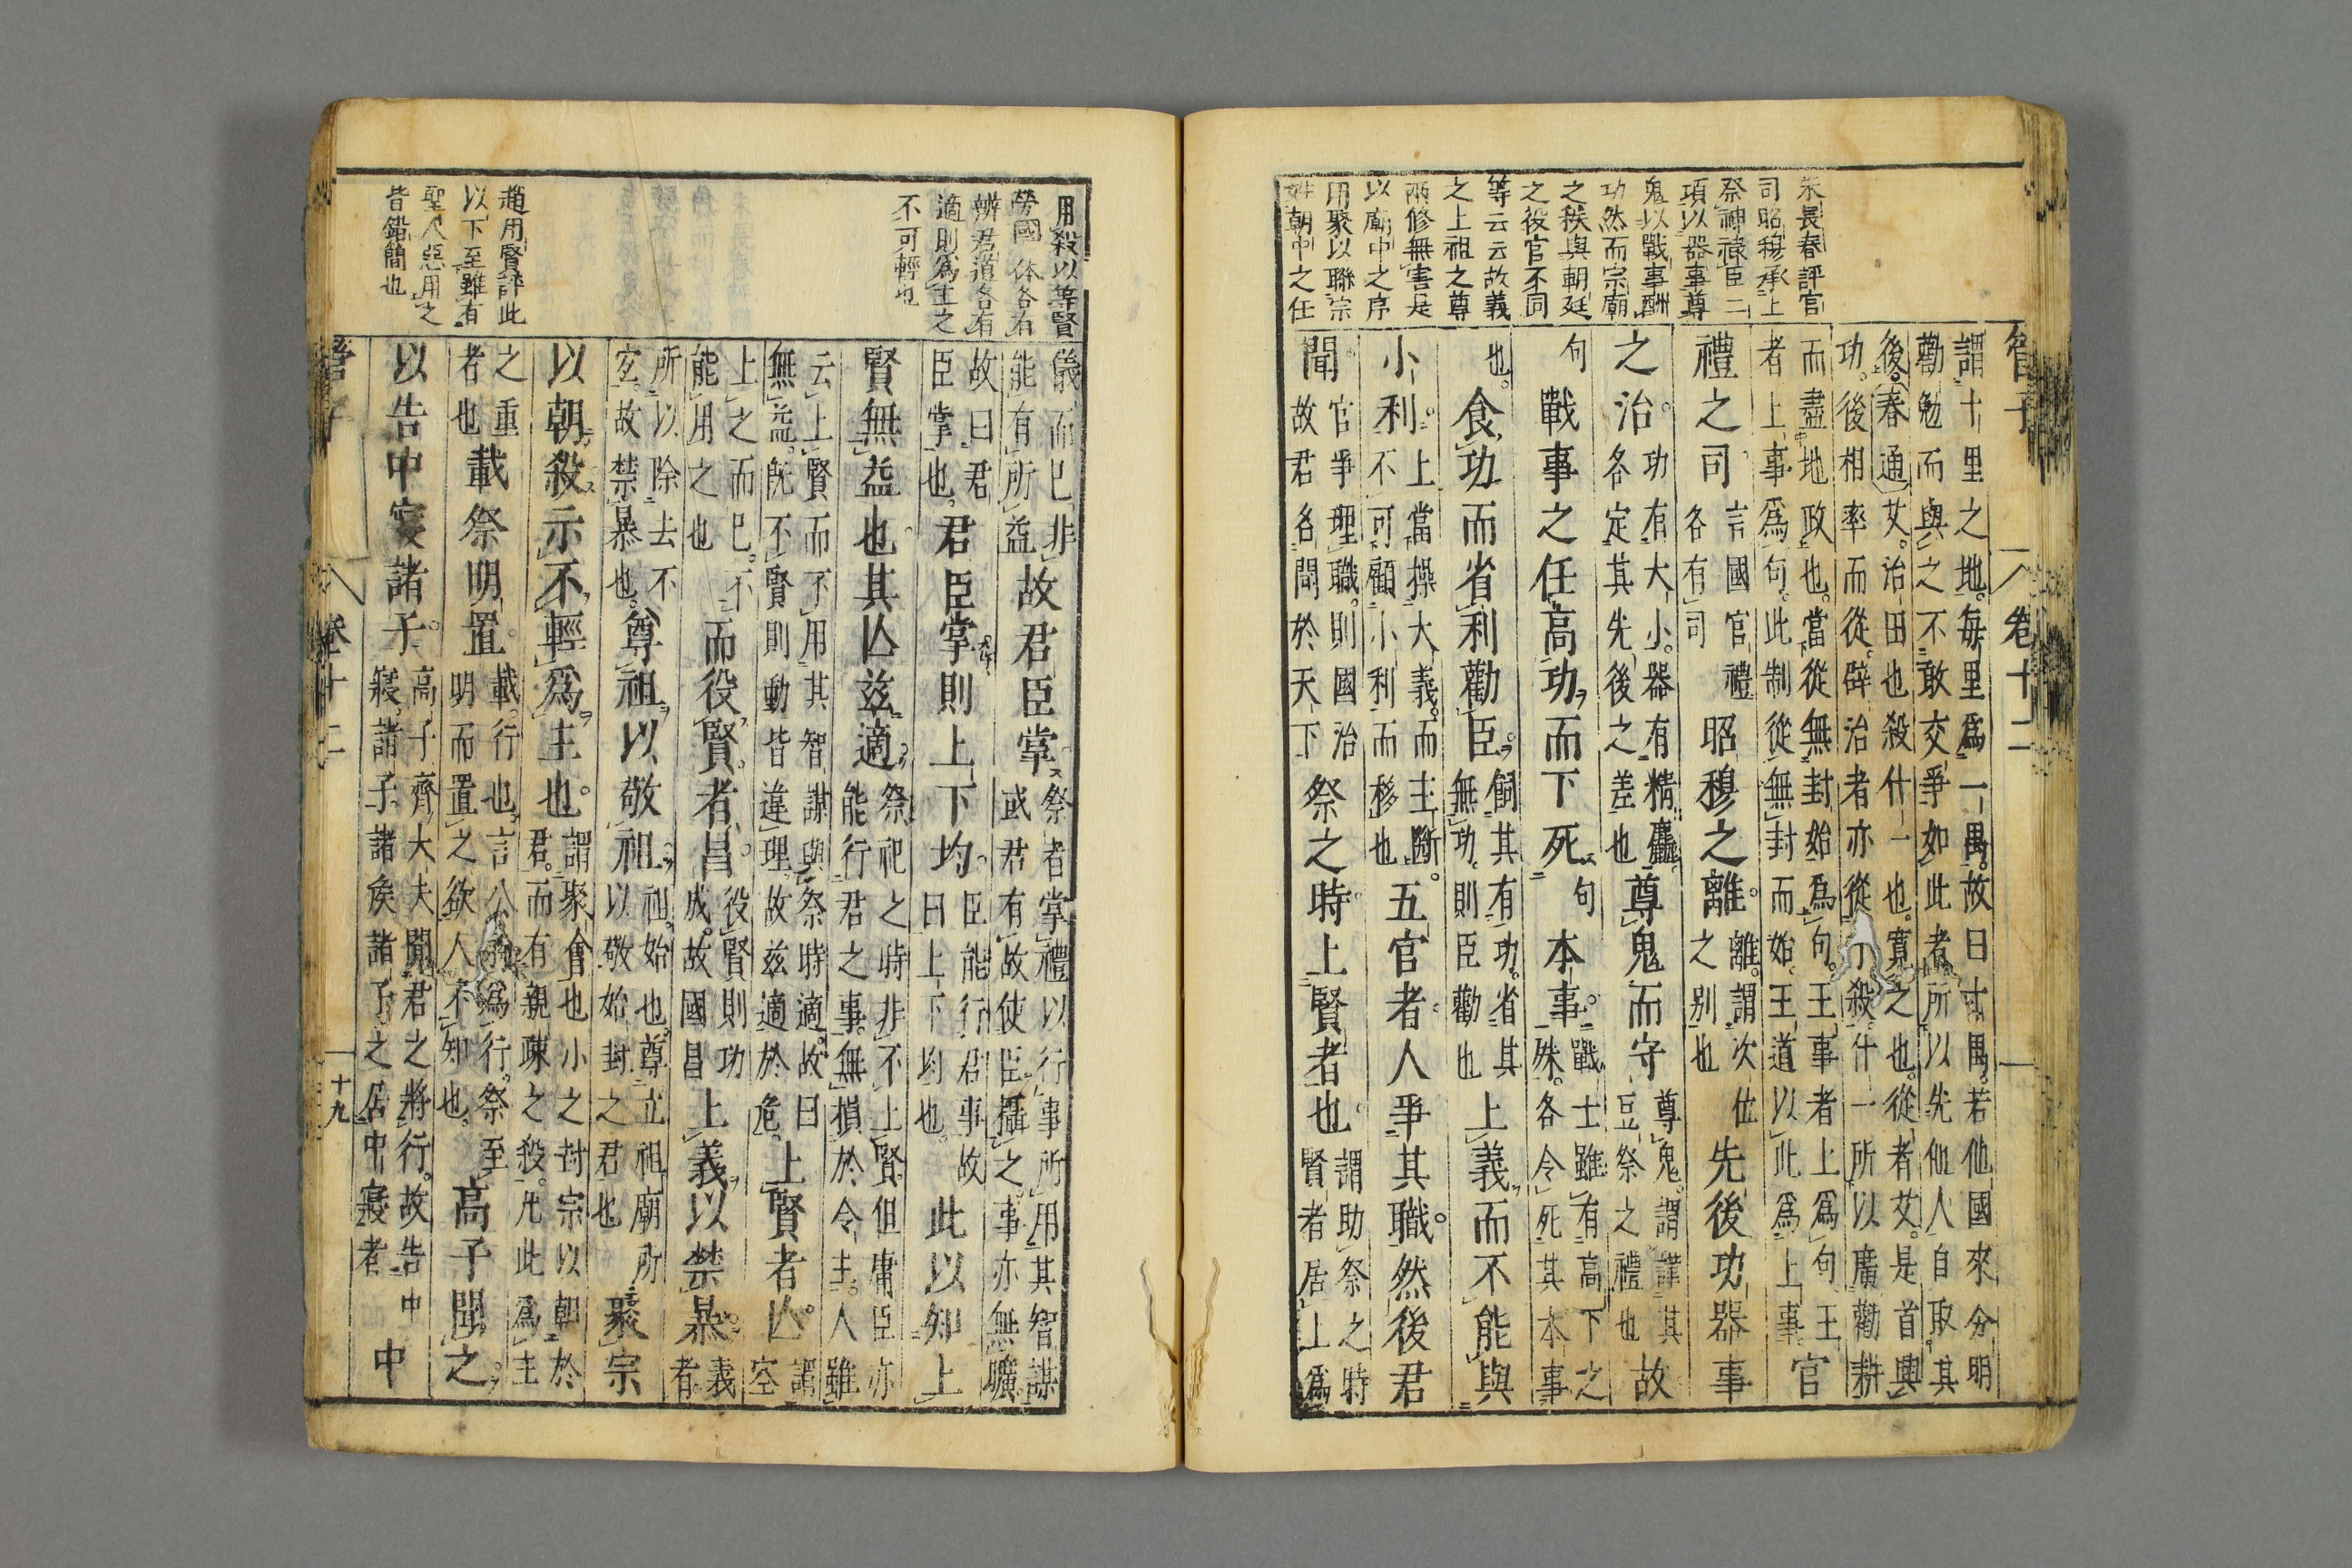 朱長春評官
司昭穆承上
祭神祿臣二
項以器事尊
鬼以戰事酬
功然而宗廟
之秩與朝廷
之役官不同
等云云故義
之上祖之尊
兩修無害是
以廟中之序
用聚以聯宗
姓朝中之任
管子 卷十二
謂十里之地每里爲一禺故曰十禺若他國來分明
勸勉而與之不敢交爭如此者所以先他人自取其
後春通艾治田也殺什一也實之也從者艾是首興
功後相率而從辟治者亦從 殺什一所以廣勸耕
而盡地政也當從無封始爲句王事者上爲句王
者上事爲句此制從無封而始王道以此爲上事
官
禮之司
言國官禮
各有司
昭穆之離
離謂次位
之别也
先後功器事
之治
功有大小器有精麤
各定其先後之差也
尊鬼而守
尊鬼謂謹其
豆祭之禮也
故
句
戰事之任高功而下死
句
本事
戰士雖有高下之
殊各令死其本事
也
食功而省利勸臣
飼其有功省其
無功則臣勸也
上義而不能與
小利
上當操大義而主斷
不可顧小利而移也
五官者人爭其職然後君
聞
官爭理職則國治
故君名聞於天下
祭之時上賢者也
謂助祭之時
賢者居上爲
用殺以等賢
勞國体各有
辨君道各有
適則爲主之
不可輕也
趙用賢評此
以下至雖有
聖人惡用之
皆錯簡也
儀而已非
能有所益
故君臣掌
祭者掌禮以行事所用其智謀
或君有故使臣攝之事亦無曠
故曰君
臣掌也
君臣掌則上下均
臣能行君事故
曰上下均也
此以知上
賢無益也其亾茲適
祭祀之時非不上賢但庸臣亦
能行君之事無損於令主人雖
云上賢而不用其智謀與祭時適故曰
無益既不賢則動皆違理故茲適於危
上賢者亾
謂
空
上之而已不
能用之也
而役賢者昌
役賢則功
成故國昌
上義以禁暴
義
者
所以除去不
宐故禁暴也
尊祖以敬祖
祖始也尊立祖廟所
以敬始封之君也
聚宗
以朝殺示不輕爲主也
謂聚會也小之封宗以朝於
君而有親疎之殺凢此爲主
之重
者也
載祭明置
載行也言 爲行祭至
明而置之欲人不知也
高子聞之
以告中寝諸子
高子齊大夫聞君之將行故告中
寢諸子諸侯諸子之居中寢者
中
卷十二
十九